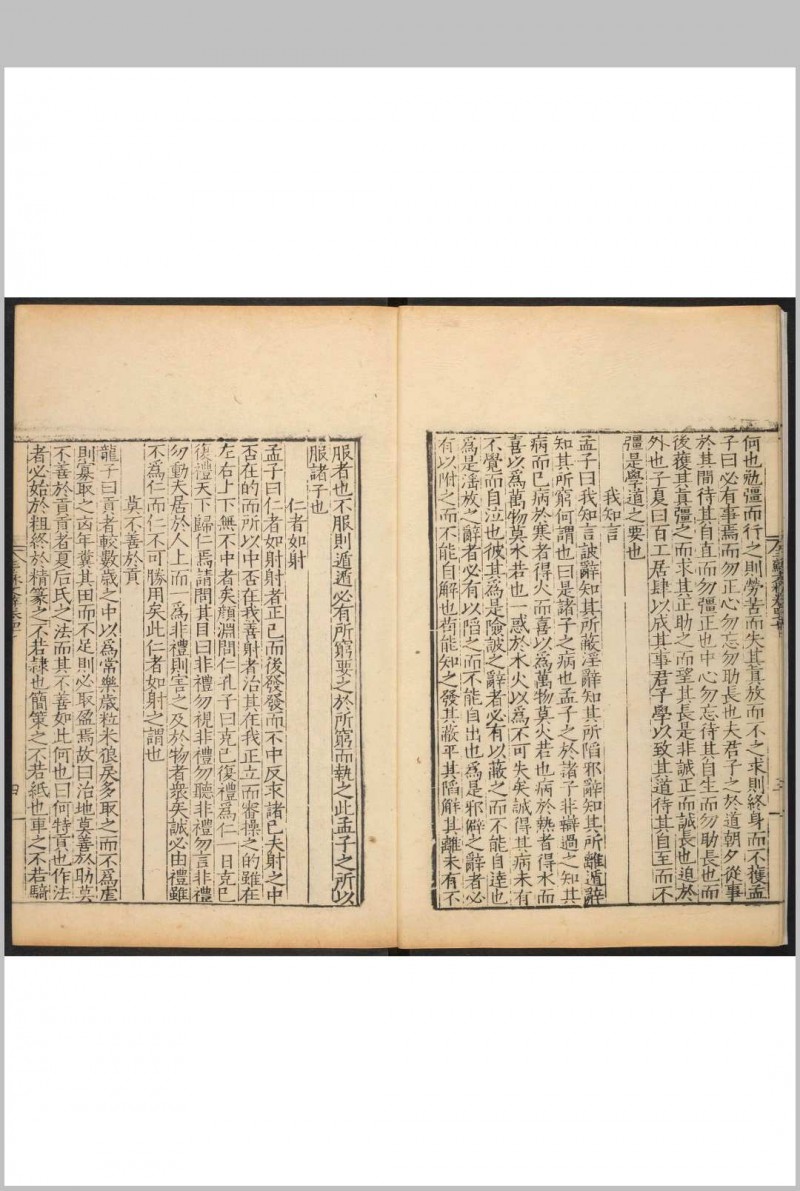 何也勉彊而行之則勞苦而失其真放而不之求則終身而不獲孟
子曰必有事焉而勿正心勿忘勿助長也夫君子之於道朝夕從事
於其間待其自直而勿彊正也中心勿忘待其自生而勿助長也而
後獲其真彊之而求其正助之而望其長是非誠正而誠長也迫於
外也子夏曰百工居肆以成其事君子學以致其道待其自至而不
彊是學道之要也
我知言
孟子曰我知言詖辭知其所蔽淫辭知其所陷邪辭知其所離遁辭
知其所窮何謂也曰是諸子之病也孟子之於諸子非辯過之知其
病而已病於寒者得火而喜以爲萬物莫火若也病於熱者得水而
喜以爲萬物莫水若也一惑於水火以爲不可失矣誠得其病未有
不覺而自泣也彼其爲是險詖之辭者必有以蔽之而不能自達也
爲是淫放之辭者必有以陷之而不能自出也爲是邪僻之辭者必
有以附之而不能自解也苟能知之發其蔽平其陷解其離未有不
服者也不服則遁遁必有所窮要之於所窮而執之此孟子之所以
服諸子也
仁者如射
孟子曰仁者如射射者正己而後發發而不中反求諸己夫射之中
否在的而所以中否在我善射者治其在我正立而審操之的雖在
左右上下無不中者矣顏淵問仁孔子曰克己復禮爲仁一日克己
復禮天下歸仁焉請問其目曰非禮勿視非禮勿聽非禮勿言非禮
勿動夫居於人上而一爲非禮則害之及於物者衆矣誠必由禮雖
不爲仁而仁不可勝用矣此仁者如射之謂也
莫不善於貢
龍子曰貢者較數歲之中以爲常樂歲粒米狼戾多取之而不爲虐
則寡取之凶年糞其田而不足則必取盈焉故曰治地莫善於助莫
不善於貢貢者夏后氏之法而其不善如此何也曰何特貢也作法
者必始於粗終於精篆之不若隸也簡策之不若紙也車之不若騎
四